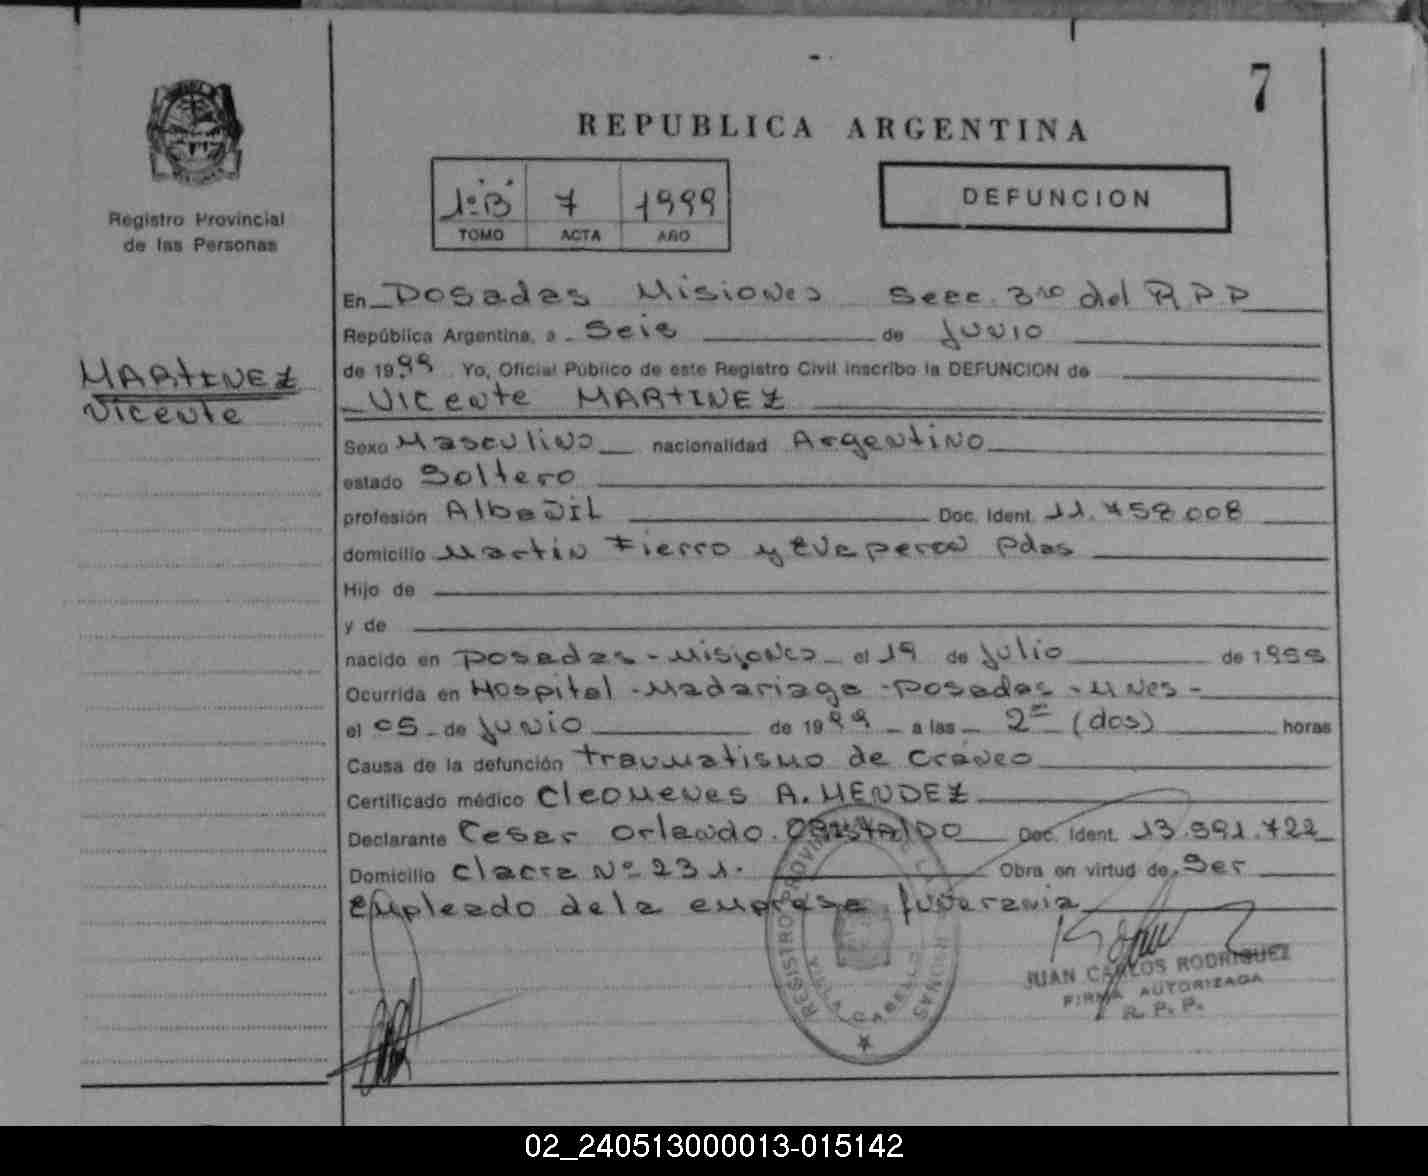 7
REPUBLICA ARGENTINA
1º B 7 1999
TOMO ACTA AÑO
DEFUNCION
Registro Provincial
de las Personas
MARTINEZ
Vicente
En Posadas Misiones Secc. 3ro del R.P.P
República Argentina, a Seis de Junio
de 1999 Yo, Oficial Público de este Registro Civil inscribo la DEFUNCION de
Vicente MARTINEZ
Sexo Masculino nacionalidad Argentino
estado Soltero
profesión Albañil Doc. Ident. 11.758.008
domicilio Martin Fierro y Eva peron Pdas
Hijo de
y de
nacido en Posadas - Misiones el 19 de Julio de 1955
Ocurrida en Hospital - Madariaga - Posadas - Mnes -
el 05 de Junio de 1999 a las 2 (dos) horas
Causa de la defunción traumatismo de Craneo
Certificado médico Cleomenes A. MENDEZ
Declarante Cesar Orlando Doc. Ident. 13.591.722
Domicilio Chacra Nº 231. Obra en virtud de Ser
Empleado de la empresa funeraria
REGISTRO PROVINCIAL DE LAS PERSONAS
JUAN CARLOS RODRIGUEZ
FIRMA AUTORIZADA
R. P. P.
02_240513000013-015142